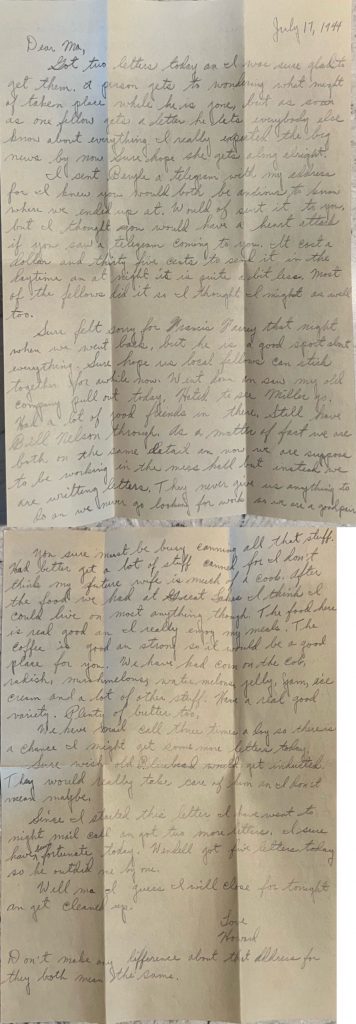 July 17, 1944
Dear Ma,
Got two letters today an I was sure glad to
get them. A person gets to wondering what might
of taken place while he is gone, but as soon
as one fellow gets a letter he lets everybody else
know about everything. I really expected the big
news by now. Sure hope she gets along alright.
I sent a telegram with my address
for I knew you would both be anxious to know
where we ended up at. Would of sent it to you,
but I thought you would have a heart attack
if you saw a telegram coming to you. It cost a
dollar and thirty five cents to send it in the
daytime an at night it is quite abit less. Most
of the fellows did it so I thought I might as well
too.
Sure felt sorry for that night
when we went back, but he is a good sport about
everything. Sure hope us local fellows can stick
together for awhile now. Went down en saw my old
company pull out today. Hated to see Miller go.
Had a lot of good friends in there. Still have
Bill Nelson though. As a matter of fact we are
both on the same detail an now we are suppose
to be working in the mess hall but instead we
are writting letters. They never give us anything to
do an we never go looking for work so we are a good pair
You sure must be busy canning all that stuff.
Had better get a lot of stuff canned for I don't
think my future wife is much of a cook. After
the food we had at Great Lakes I think I
could live on most anything though. The food here
is real good an I really enjoy my meals. The
coffee is good an strong so it would be a good
place for you. We have had corn on the cob,
radish, mushmelons, water melons, jelly, jam, ice
cream and a lot of other stuff. Have a real good
variety. Plenty of butter too.
We have mail call three times a day so there is
a chance I might get some more letters today.
Sure wish old Bluebeard would get inducted.
They would really take care of him an I don't
mean maybe.
Since I started this letter I have went to
night mail call an got two more letters. I sure
have fortunate today. Wendell got five letters today
so he outdid me by one.
Well ma I guess I will close for tonight
an get cleaned up.
Love
Howard
Don't make any difference about that address for
they both mean the same.